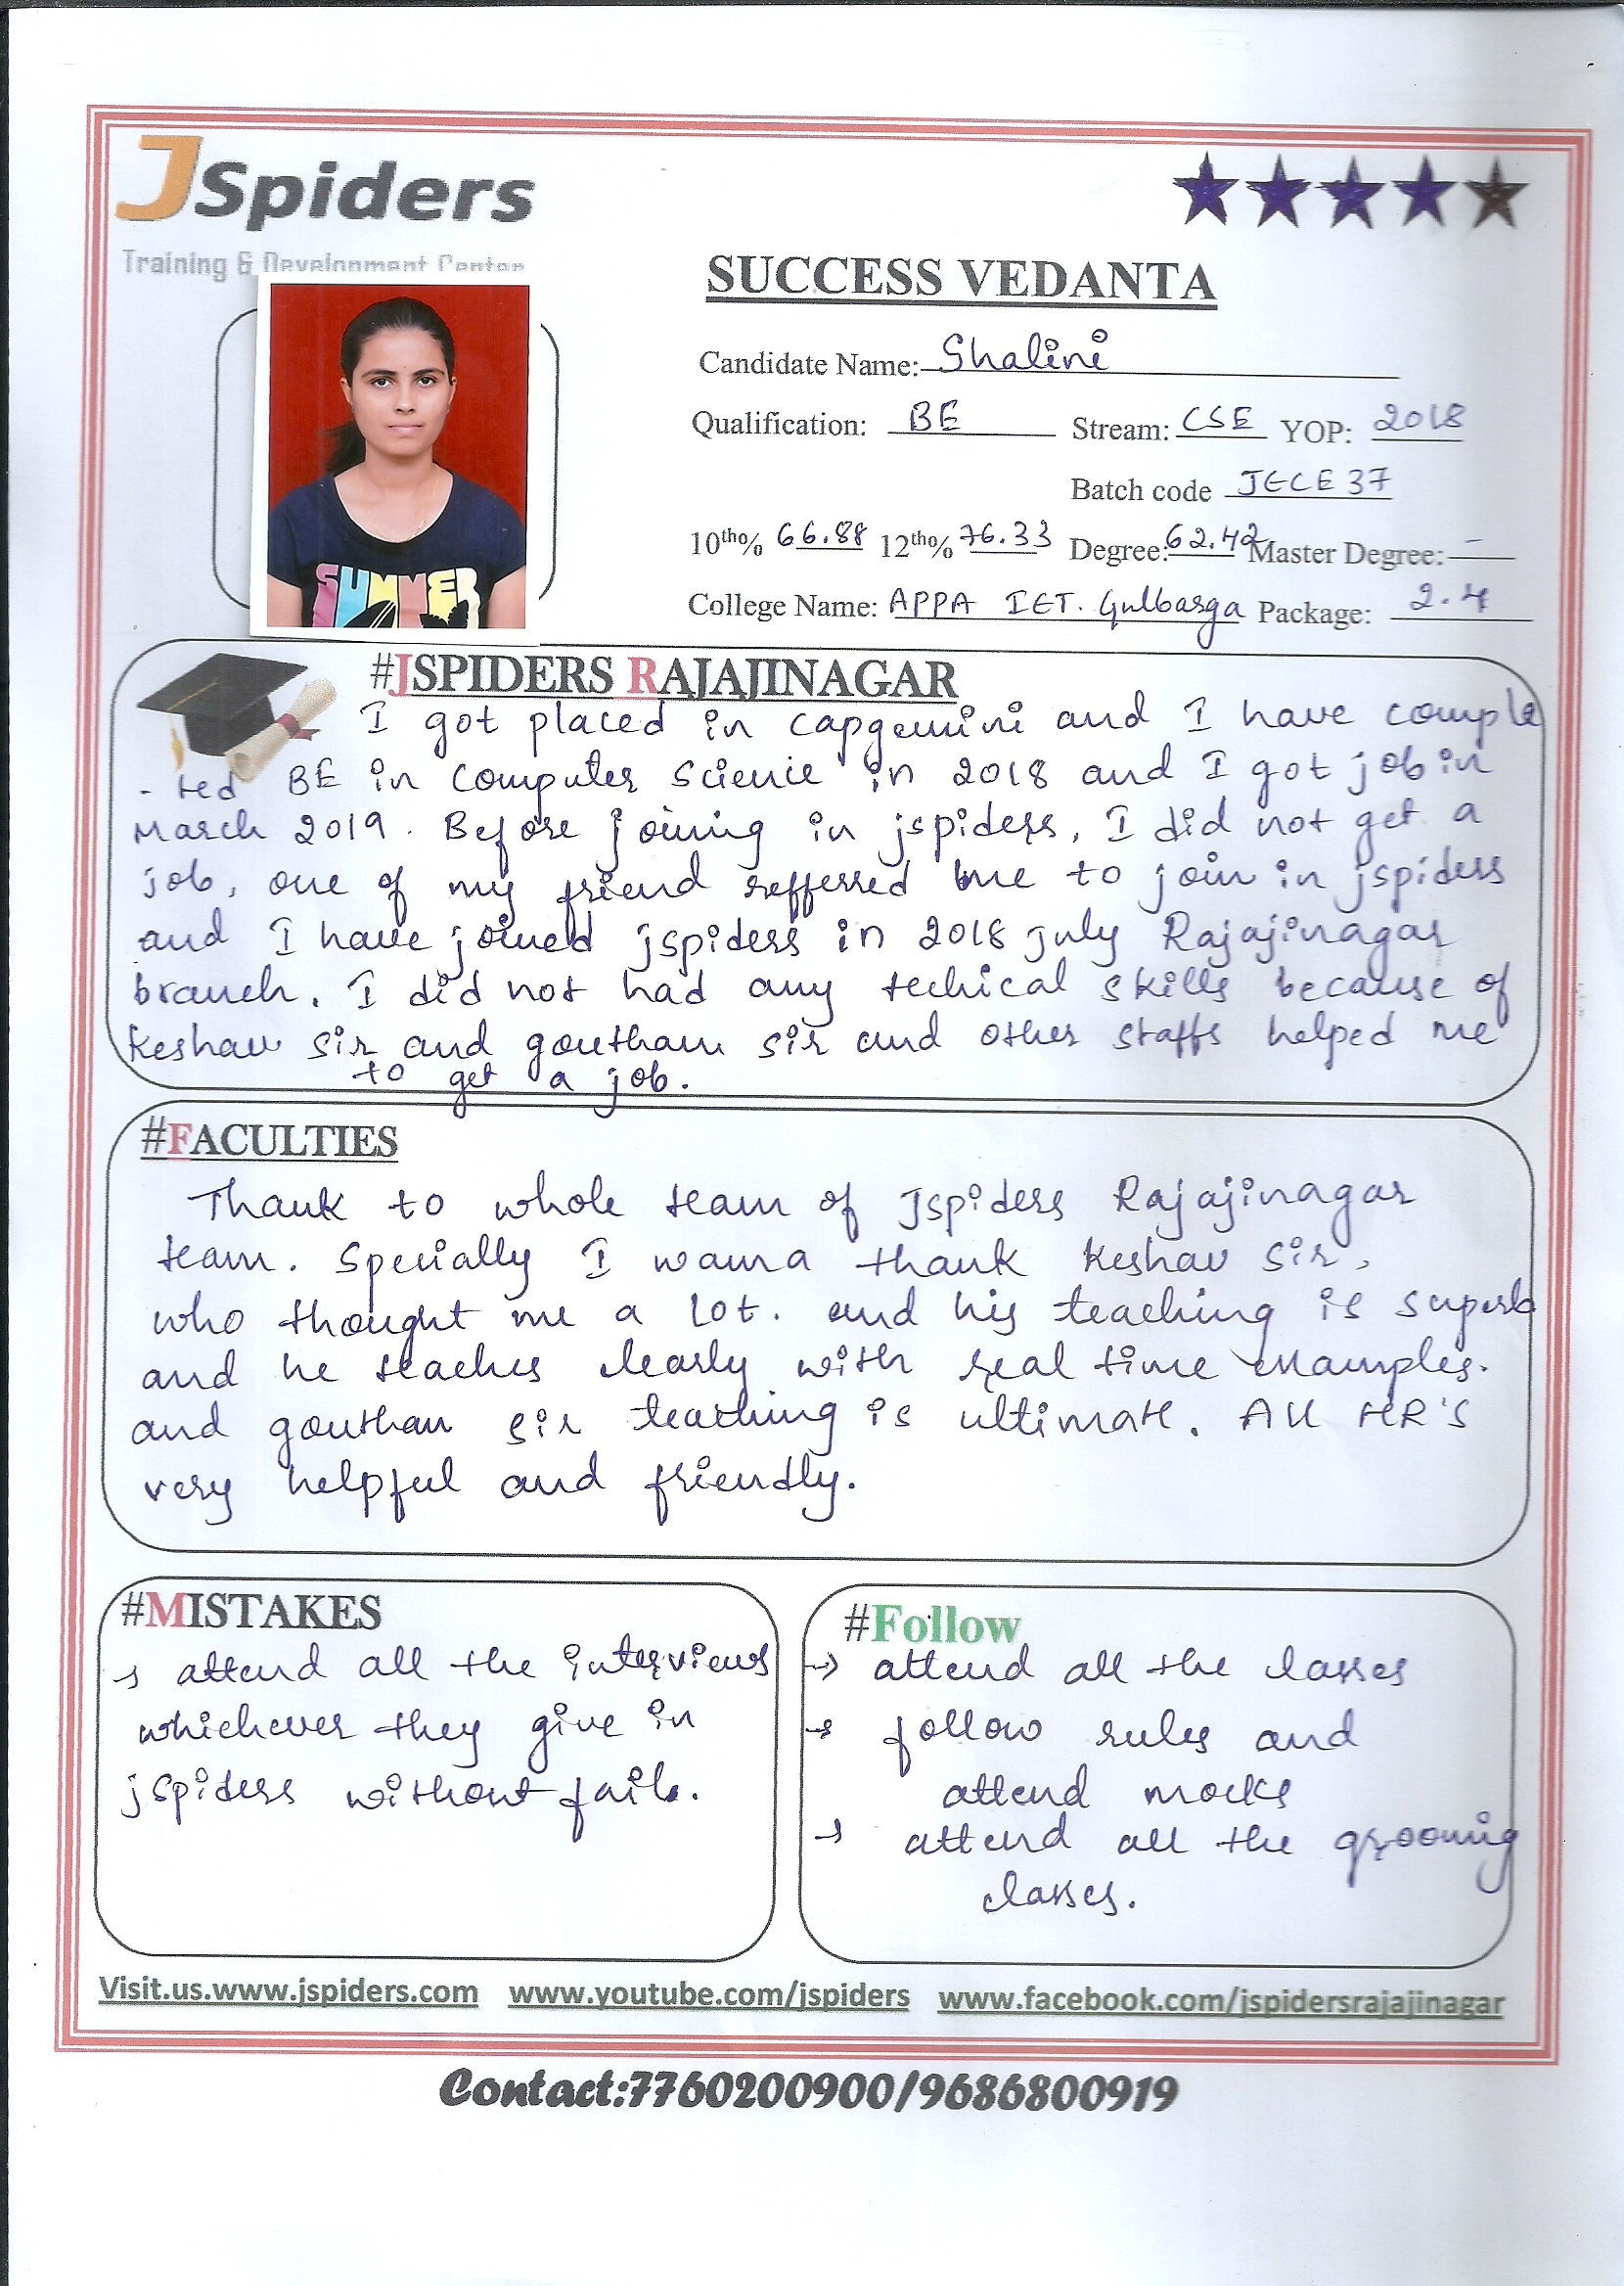 JSpiders
Training & Development Center
SUCCESS VEDANTA
Candidate Name: Shalini
Qualification: BE Stream: CSE YOP: 2018
Batch code JECE 37
10th% 66.88 12th% 76.33 Degree: 62.42 Master Degree: -
College Name: APPA IET. Gulbarga Package: 2.4
#JSPIDERS RAJAJINAGAR
I got placed in capgemini and I have comple
- ted BE in computer science in 2018 and I got job in
March 2019. Before joining in jspiders, I did not get a
job, one of my friend refferred me to join in jspiders
and I have joined jspiders in 2018 july Rajajinagar
branch. I did not had any techical skills because of
Keshav sir and goutham sir and other staffs helped me
to get a job.
#FACULTIES
Thank to whole team of Jspiders Rajajinagar
team. Specially I wanna thank Keshav sir,
who thought me a lot. and his teaching is superb
and he teaches clearly with real time examples.
and goutham sir teaching is ultimate. All HR's
very helpful and friendly.
#MISTAKES
→ attend all the interviews
whichever they give in
jspiders without fail.
#Follow
→ attend all the classes
→ follow rules and
attend mocks
→ attend all the grooming
classes.
Visit.us.www.jspiders.com www.youtube.com/jspiders www.facebook.com/jspidersrajajinagar
Contact:7760200900/9686800919
SUMMER